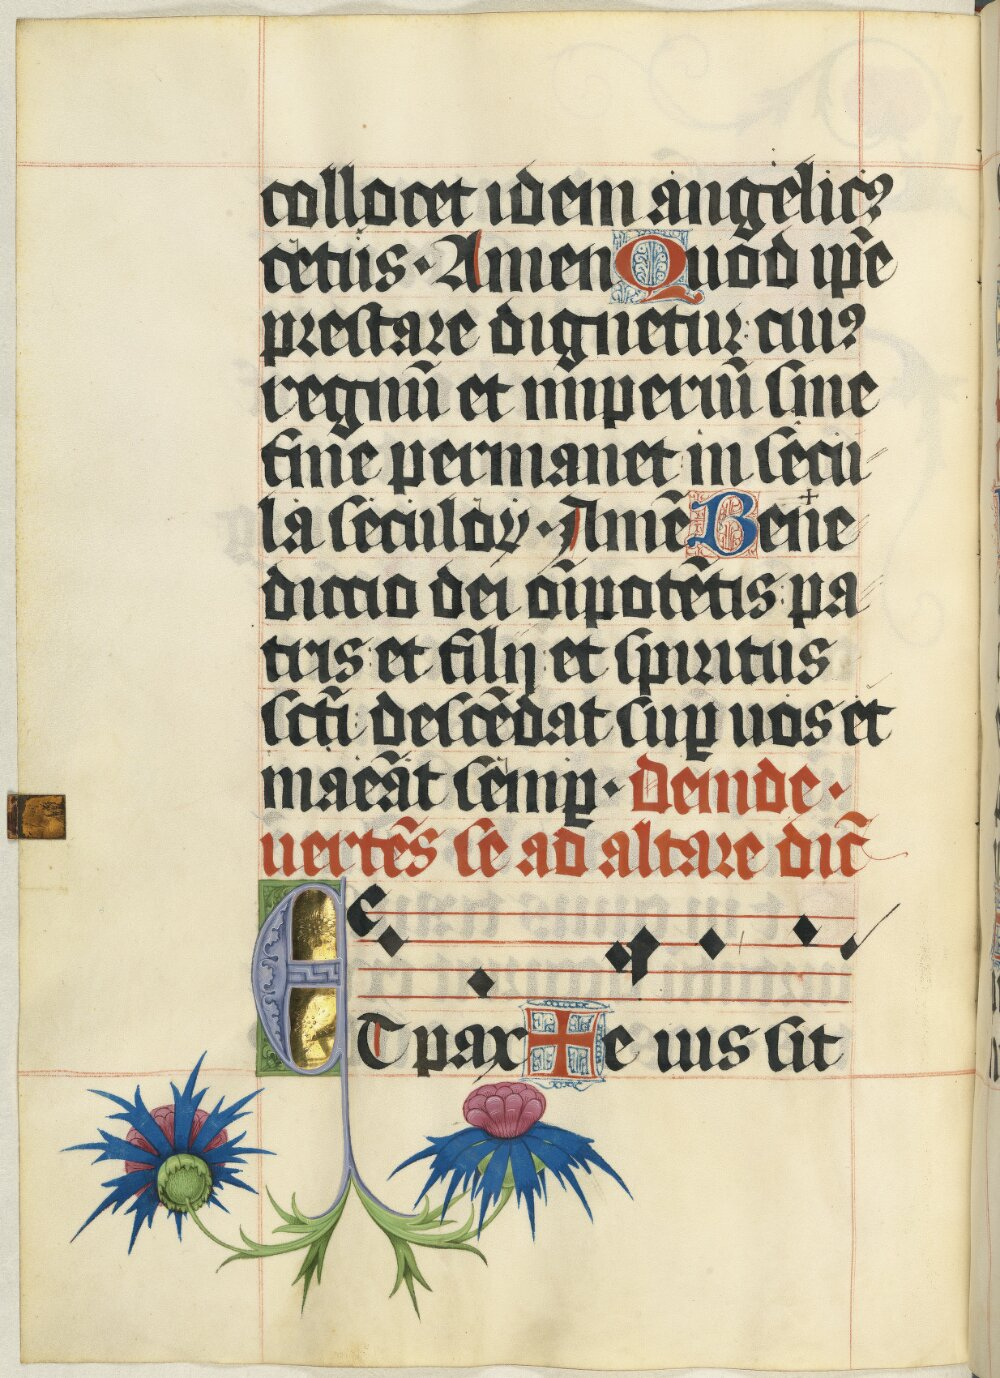 collocet idem angelicꝰ
cetus · Amen Quod ip̄e
prestare dignetur cuiꝰ
regnū et imperiū sine
fine permanet in secu
la seculoꝝ · Amē Bene
diccio dei oīpotētis pa
tris et filij et spiritus
sc̄ti descēdat suꝑ uos et
maneāt semꝑ · Deinde ·
uertēs se ad altare dic̄
ET pax ✠ e ius sit